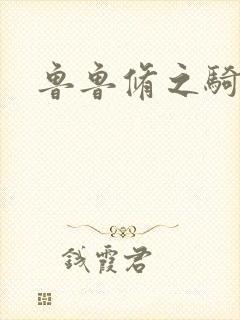 魯魯脩之騎
霞君